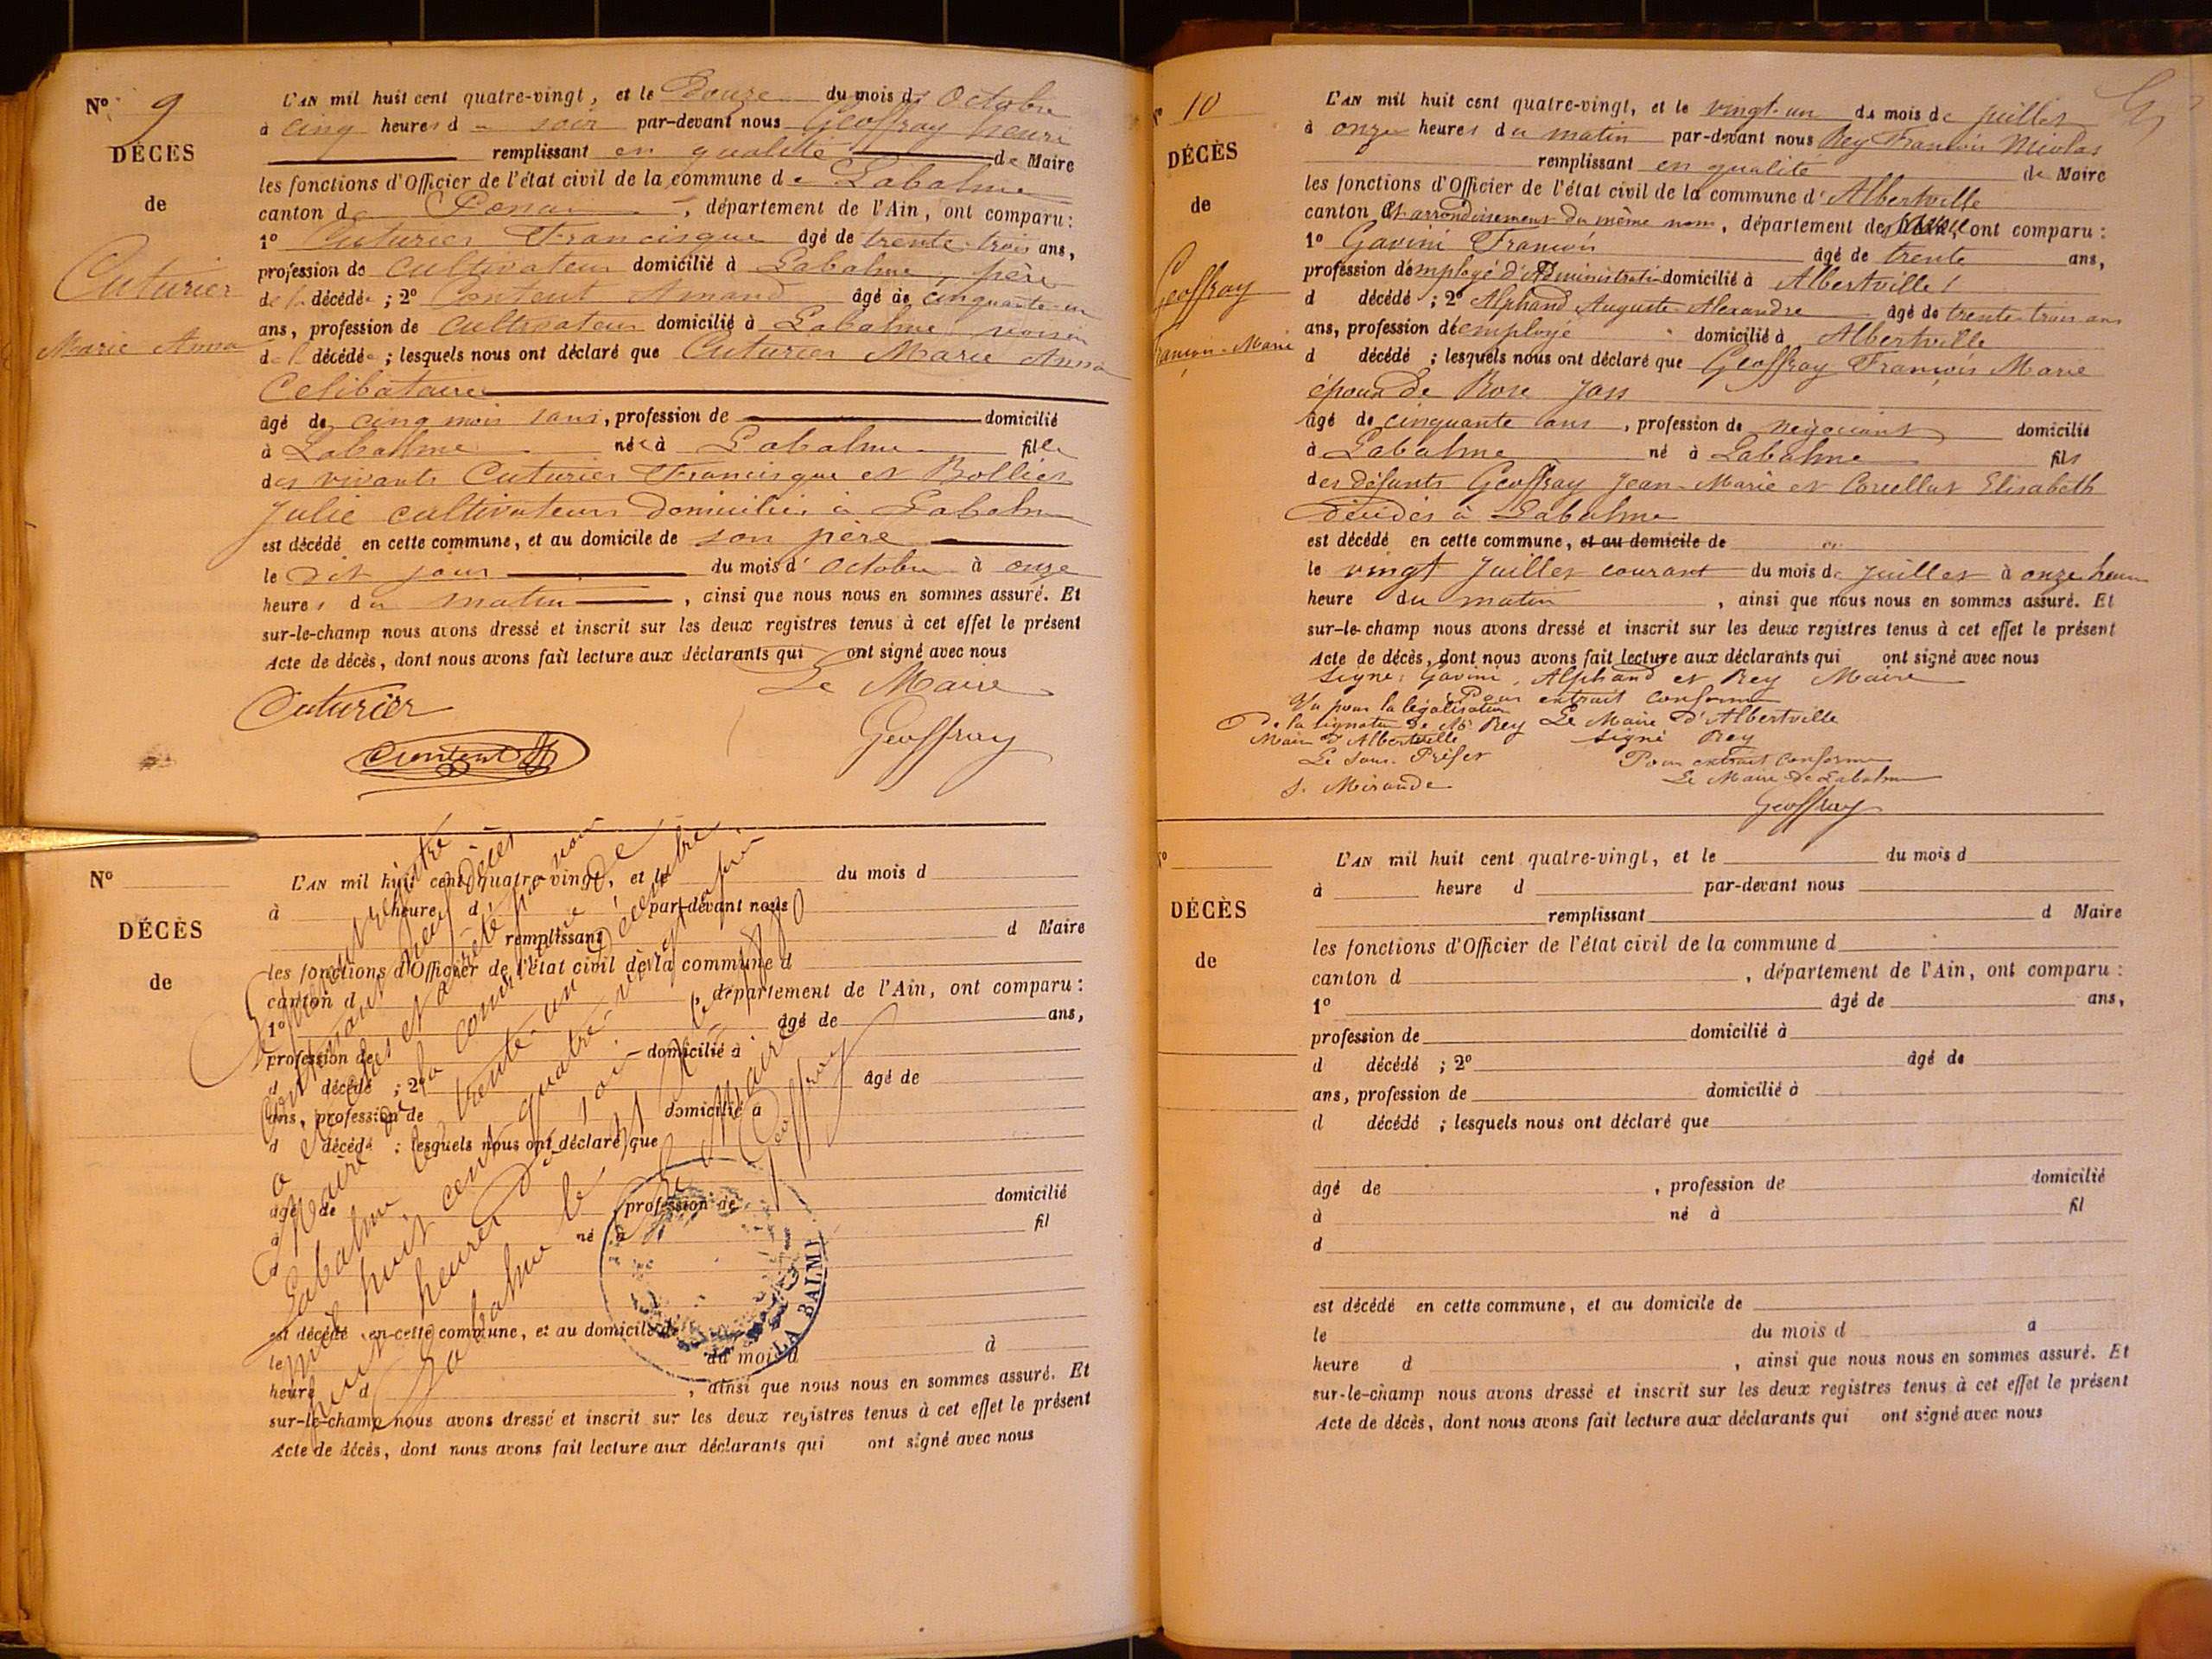 N° 9
DÉCÈS
de
Cuturier
Marie Anna
L'AN mil huit cent quatre-vingt, et le Douze du mois d' Octobre
à cinq heures d soir par-devant nous Geoffray henri
remplissant en qualité de Maire
les fonctions d'Officier de l'état civil de la commune de Labalme
canton de Poncin, département de l'Ain, ont comparu :
1° Cuturier Francisque âgé de trente-trois ans,
profession de Cultivateur domicilié à Labalme, père
de la décédée ; 2° Content Amand âgé de cinquante-un
ans, profession de Cultivateur domicilié à Labalme voisin
de la décédée ; lesquels nous ont déclaré que Cuturier Marie Anna
Celibataire
âgé de cinq mois sans, profession de domicilié
à Labalme née à Labalme fille
des vivants Cuturier Francisque et Bollier
Julie cultivateurs domiciliés à Labalme
est décédé en cette commune, et au domicile de son père
le dit jour du mois d' Octobre à onze
heures du matin, ainsi que nous nous en sommes assuré. Et
sur-le-champ nous avons dressé et inscrit sur les deux registres tenus à cet effet le présent
Acte de décès, dont nous avons fait lecture aux déclarants qui ont signé avec nous
Le Maire
Cuturier
Content
Geoffray
N°
DÉCÈS
de
L'AN mil huit cent quatre-vingt, et le du mois d
à heure d par-devant nous
remplissant d Maire
les fonctions d'Officier de l'état civil de la commune d
canton d , département de l'Ain, ont comparu :
1° âgé de ans,
profession de domicilié à
d décédé ; 2° âgé de
ans, profession de domicilié à
d décédé ; lesquels nous ont déclaré que
âgé de , profession de domicilié
à né à fil
d
est décédé en cette commune, et au domicile de
le du mois d à
heure d , ainsi que nous nous en sommes assuré. Et
sur-le-champ nous avons dressé et inscrit sur les deux registres tenus à cet effet le présent
Acte de décès, dont nous avons fait lecture aux déclarants qui ont signé avec nous
Le présent registre
contenant neuf décès
a été clos et arrêté par nous
Maire de la commune de
Labalme le trente-un Décembre
mil huit cent quatre-vingt à
huit heures du soir
Labalme le
Le Maire
Geoffray
LA BALME
N° 10
DÉCÈS
de
Geoffray
François-Marie
L'AN mil huit cent quatre-vingt, et le vingt-un du mois de juillet
à onze heures du matin par-devant nous Rey François Nicolas
remplissant en qualité de Maire
les fonctions d'Officier de l'état civil de la commune d' Albertville
canton et arrondissement du même nom, département de ont comparu :
1° Gavini François âgé de trente ans,
profession d'employé d'Administration domicilié à Albertville
d décédé ; 2° Alphand Auguste Alexandre âgé de trente-trois ans
ans, profession d'employé domicilié à Albertville
d décédé ; lesquels nous ont déclaré que Geoffray François Marie
époux de Rose Joss
âgé de cinquante ans, profession de négociant domicilié
à Labalme né à Labalme fils
des défunts Geoffray Jean-Marie et Elisabeth
décédés à Labalme
est décédé en cette commune, et au domicile de
le vingt Juillet courant du mois de juillet à onze heures
heure du matin, ainsi que nous nous en sommes assuré. Et
sur-le-champ nous avons dressé et inscrit sur les deux registres tenus à cet effet le présent
Acte de décès, dont nous avons fait lecture aux déclarants qui ont signé avec nous
Signé : Gavini, Alphand et Rey Maire
Pour extrait conforme
Vu pour la légalisation
De la signature de Mr Rey
Le Maire d'Albertville
Maire d'Albertville
signé Rey
Le Sous-Préfet
Pour extrait conforme
Le Maire de Labalme
s. Mirande
Geoffray
N°
DÉCÈS
de
L'AN mil huit cent quatre-vingt, et le du mois d
à heure d par-devant nous
remplissant d Maire
les fonctions d'Officier de l'état civil de la commune d
canton d , département de l'Ain, ont comparu :
1° âgé de ans,
profession de domicilié à
d décédé ; 2° âgé de
ans, profession de domicilié à
d décédé ; lesquels nous ont déclaré que
âgé de , profession de domicilié
à né à fil
d
est décédé en cette commune, et au domicile de
le du mois d à
heure d , ainsi que nous nous en sommes assuré. Et
sur-le-champ nous avons dressé et inscrit sur les deux registres tenus à cet effet le présent
Acte de décès, dont nous avons fait lecture aux déclarants qui ont signé avec nous